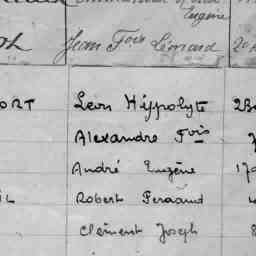 Eugène
Jean Fois Léonard
ORT Léon Hippolyte
Alexandre Fois
André Eugène
IL Robert Fernand
Clément Joseph